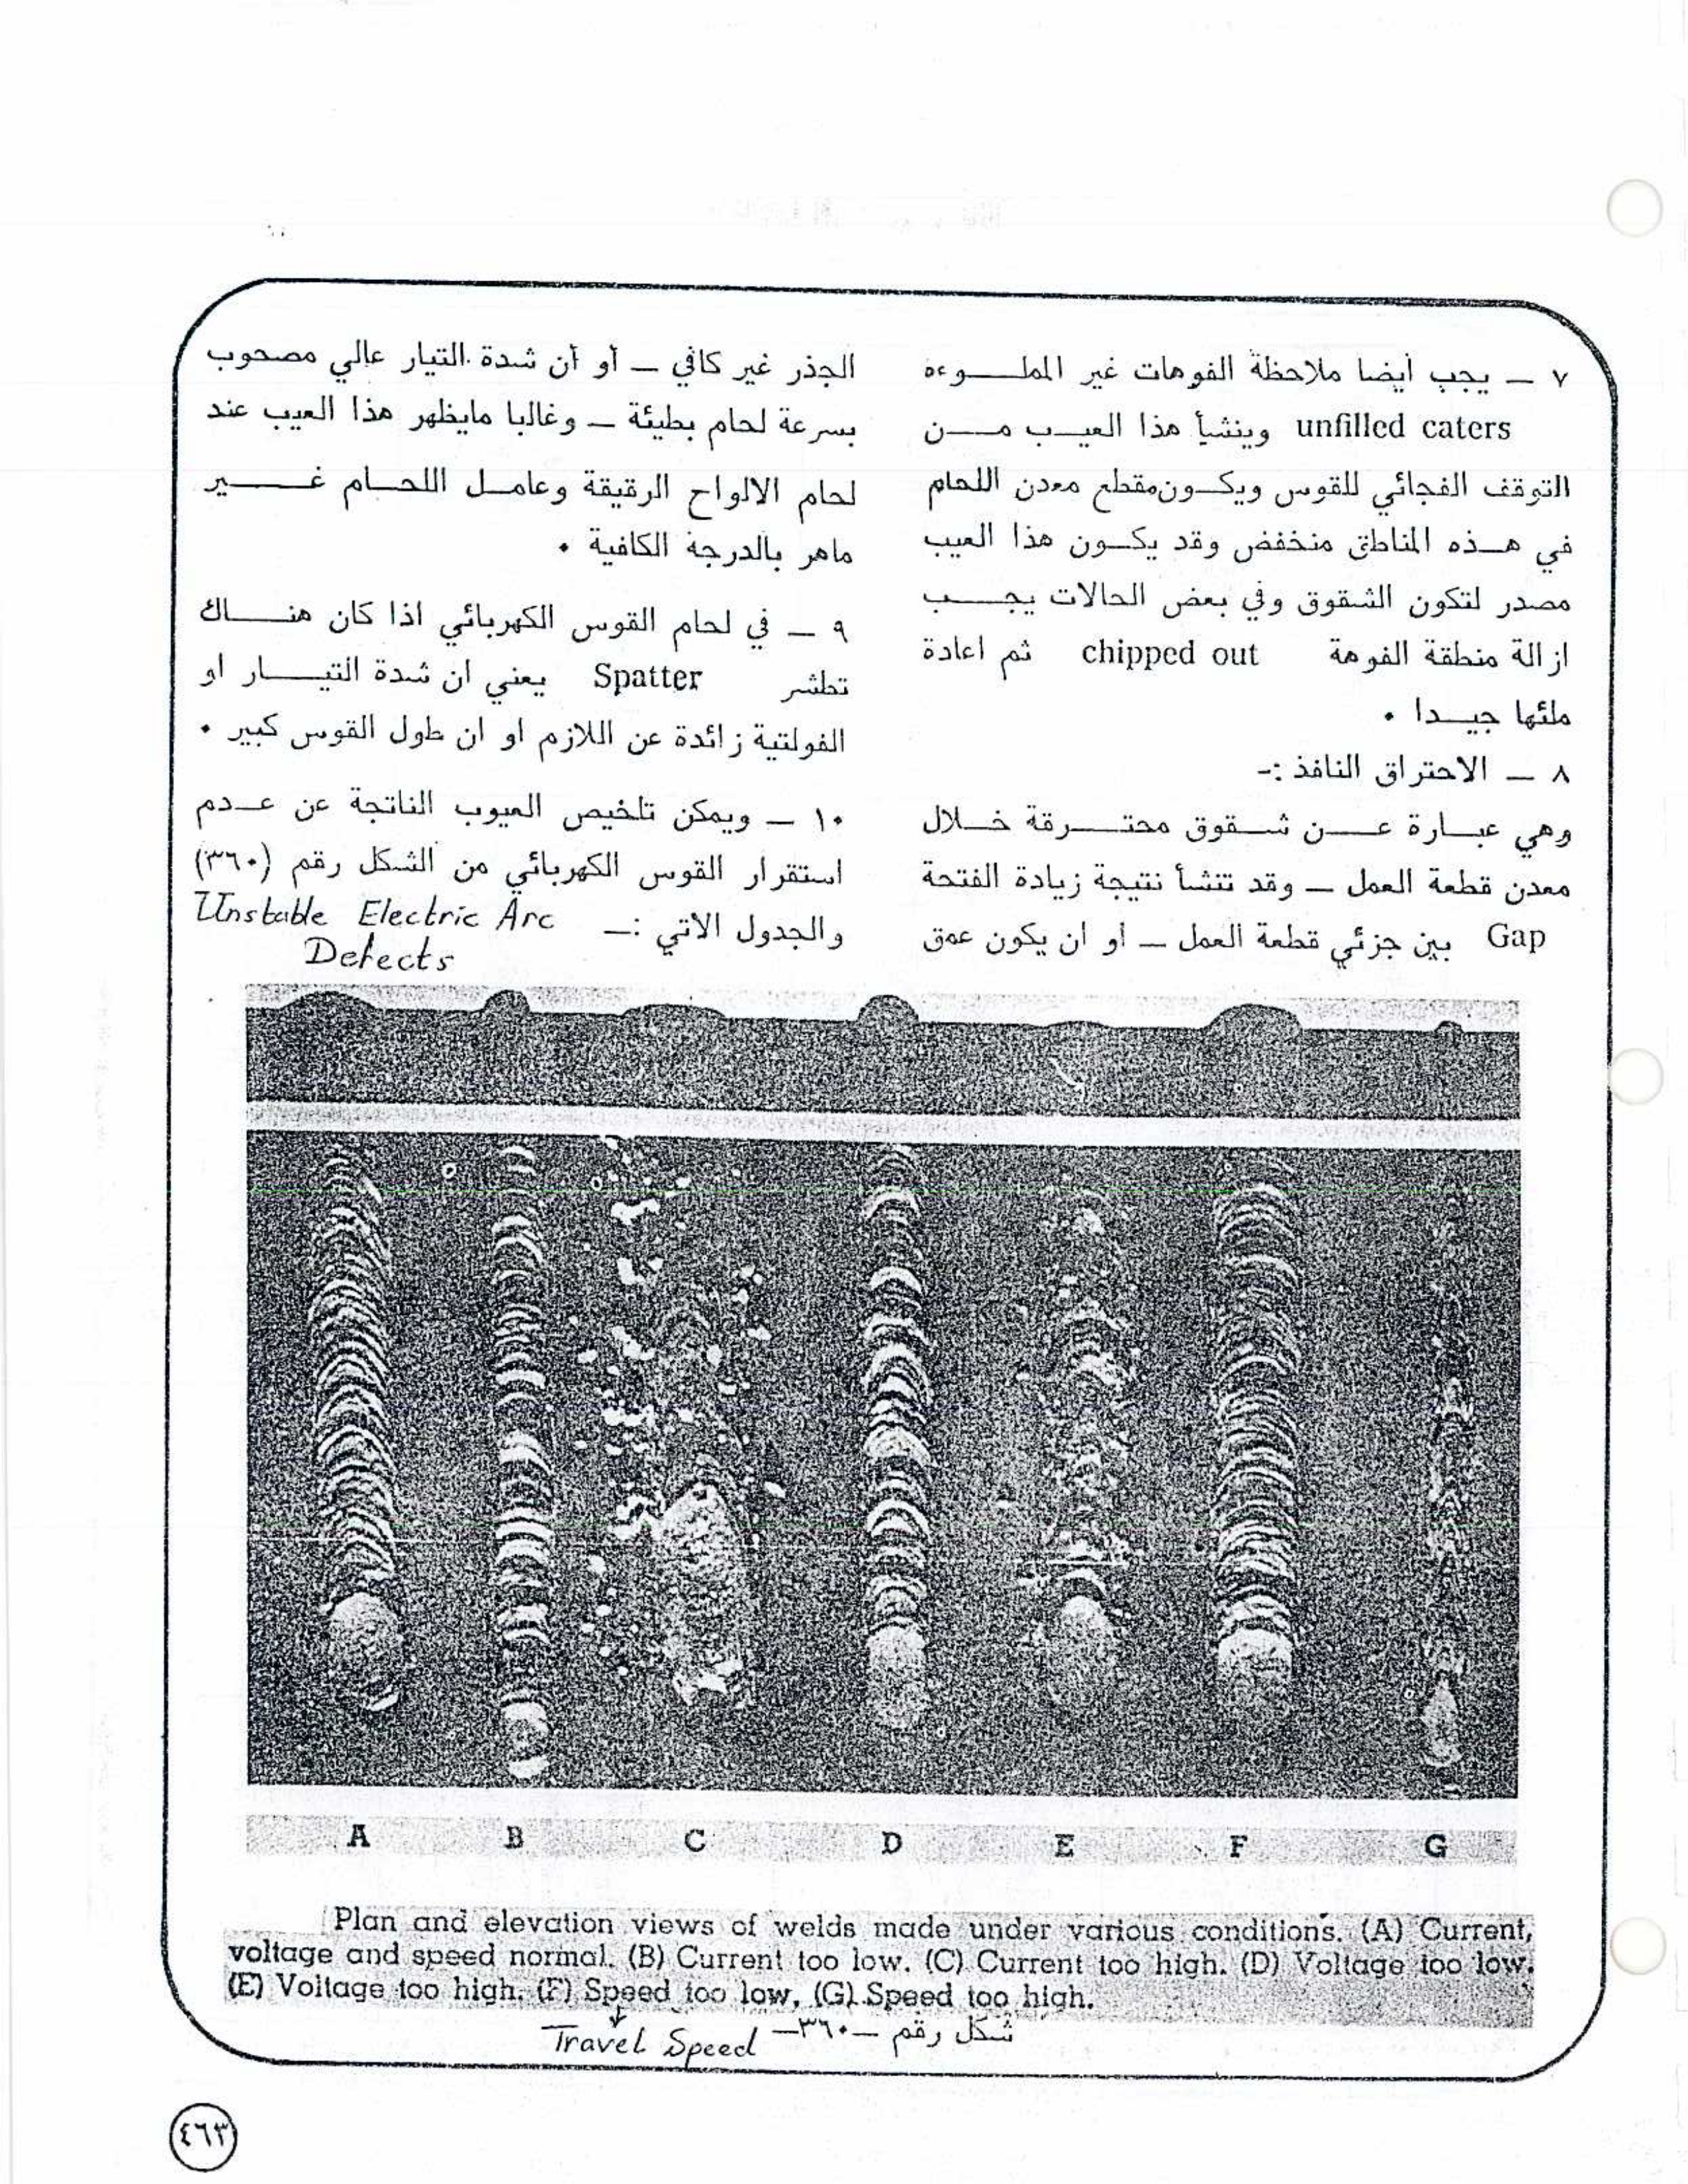 ٧ ــ يجب أيضا ملاحظة الفوهات غير الملـــوءه
unfilled caters وينشأ هذا العيــب مــن
التوقف الفجائي للقوس ويكــون مقطع معدن اللحام
في هــذه المناطق منخفض وقد يكــون هذا العيب
مصدر لتكون الشقوق وفي بعض الحالات يجــــب
ازالة منطقة الفوهة chipped out ثم اعادة
ملئها جيــدا ٠
٨ ــ الاحتراق النافذ :-
وهي عبــارة عــــن شــقوق محتـــرقة خــلال
معدن قطعة العمل ــ وقد تنشأ نتيجة زيادة الفتحة
Gap بين جزئي قطعة العمل ــ او ان يكون عمق
الجذر غير كافي ــ أو أن شدة التيار عالي مصحوب
بسرعة لحام بطيئة ــ وغالبا مايظهر هذا العيب عند
لحام الالواح الرقيقة وعامــل اللحــام غـــــير
ماهر بالدرجة الكافية ٠
٩ ــ في لحام القوس الكهربائي اذا كان هنــــاك
تطشر Spatter يعني ان شدة التيـــــار او
الفولتية زائدة عن اللازم او ان طول القوس كبير ٠
١٠ ــ ويمكن تلخيص العيوب الناتجة عن عــدم
استقرار القوس الكهربائي من الشكل رقم (٣٦٠)
والجدول الاتي :ــ Unstable Electric Arc
Defects
A B C D E F G
Plan and elevation views of welds made under various conditions. (A) Current,
voltage and speed normal. (B) Current too low. (C) Current too high. (D) Voltage too low.
(E) Voltage too high. (F) Speed too low, (G) Speed too high.
شكل رقم ــ ٣٦٠ــ Travel Speed
٤٦٣